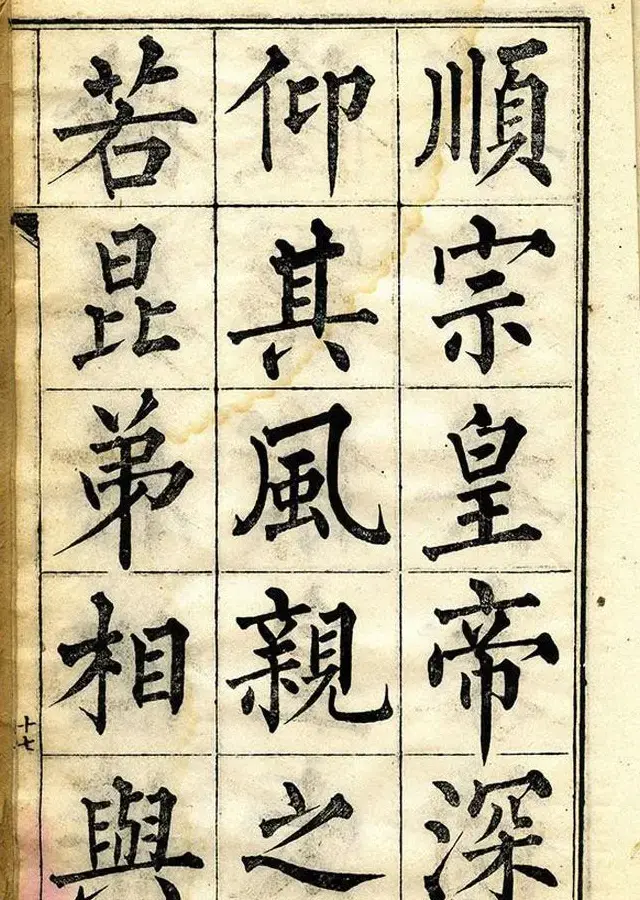 順宗皇帝深
仰其風親之
若昆弟相與
十七